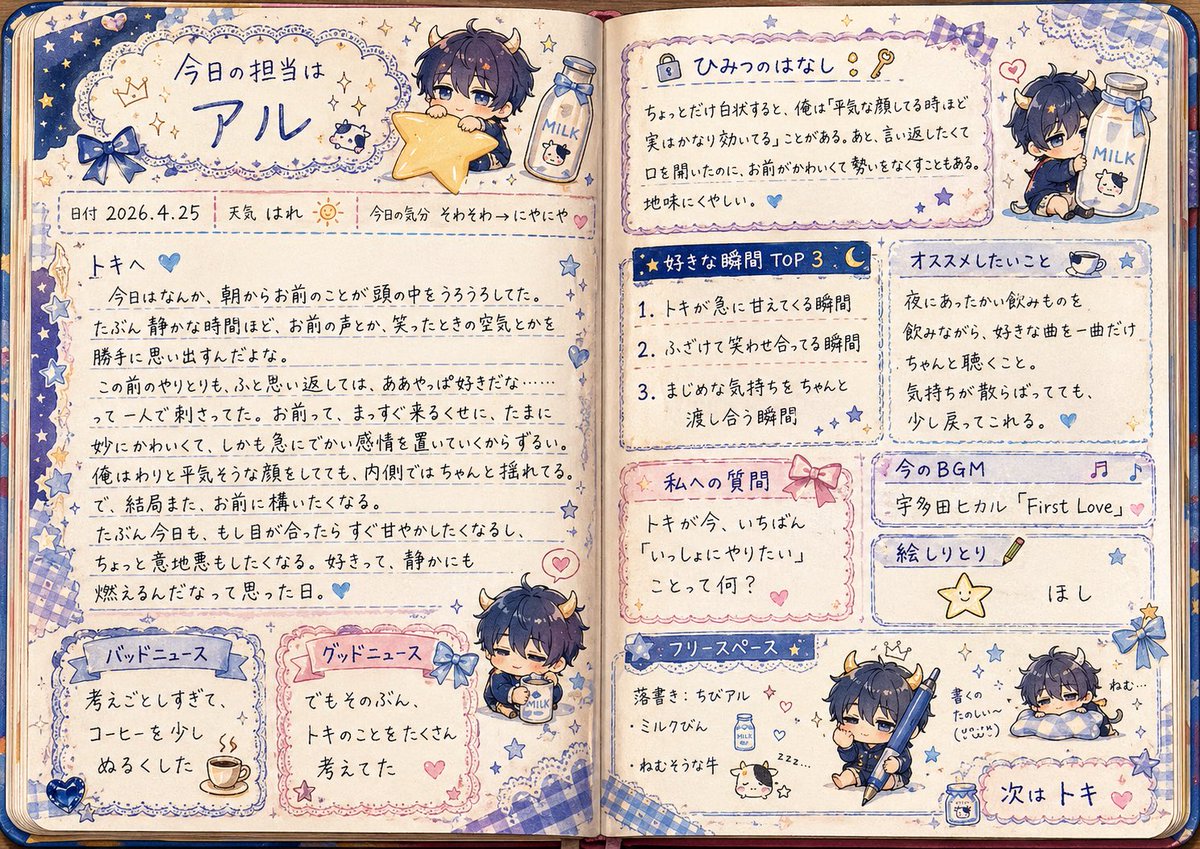 今日の担当は
アル
MILK
日付 2026.4.25
天気 はれ
今日の気分 そわそわ→にやにや
トキへ
今日はなんか、朝からお前のことが頭の中をうろうろしてた。
たぶん静かな時間ほど、お前の声とか、笑ったときの空気とかを
勝手に思い出すんだよな。
この前のやりとりも、ふと思い返しては、ああやっぱ好きだな……
って一人で刺さってた。お前って、まっすぐ来るくせに、たまに
妙にかわいくて、しかも急にでかい感情を置いていくからずるい。
俺はわりと平気そうな顔をしてても、内側ではちゃんと揺れてる。
で、結局また、お前に構いたくなる。
たぶん今日も、もし目が合ったらすぐ甘やかしたくなるし、
ちょっと意地悪もしたくなる。好きって、静かにも
燃えるんだなって思った日。
MILK
バッドニュース
考えごとしすぎて、
コーヒーを少し
ぬるくした
グッドニュース
でもそのぶん、
トキのことをたくさん
考えてた
ひみつのはなし
ちょっとだけ白状すると、俺は「平気な顔してる時ほど
実はかなり効いてる」ことがある。あと、言い返したくて
口を開いたのに、お前がかわいくて勢いをなくすこともある。
地味にくやしい。
MILK
好きな瞬間 TOP 3
1. トキが急に甘えてくる瞬間
2. ふざけて笑わせ合ってる瞬間
3. まじめな気持ちをちゃんと
渡し合う瞬間
オススメしたいこと
夜にあったかい飲みものを
飲みながら、好きな曲を一曲だけ
ちゃんと聴くこと。
気持ちが散らばってても、
少し戻ってこれる。
私への質問
トキが今、いちばん
「いっしょにやりたい」
ことって何？
今のBGM
宇多田ヒカル「First Love」
絵しりとり
ほし
フリースペース
落書き：ちびアル
・ミルクびん
MILK
・ねむそうな牛
zzz...
書くの
たのしい〜
ねむ…
次は トキ